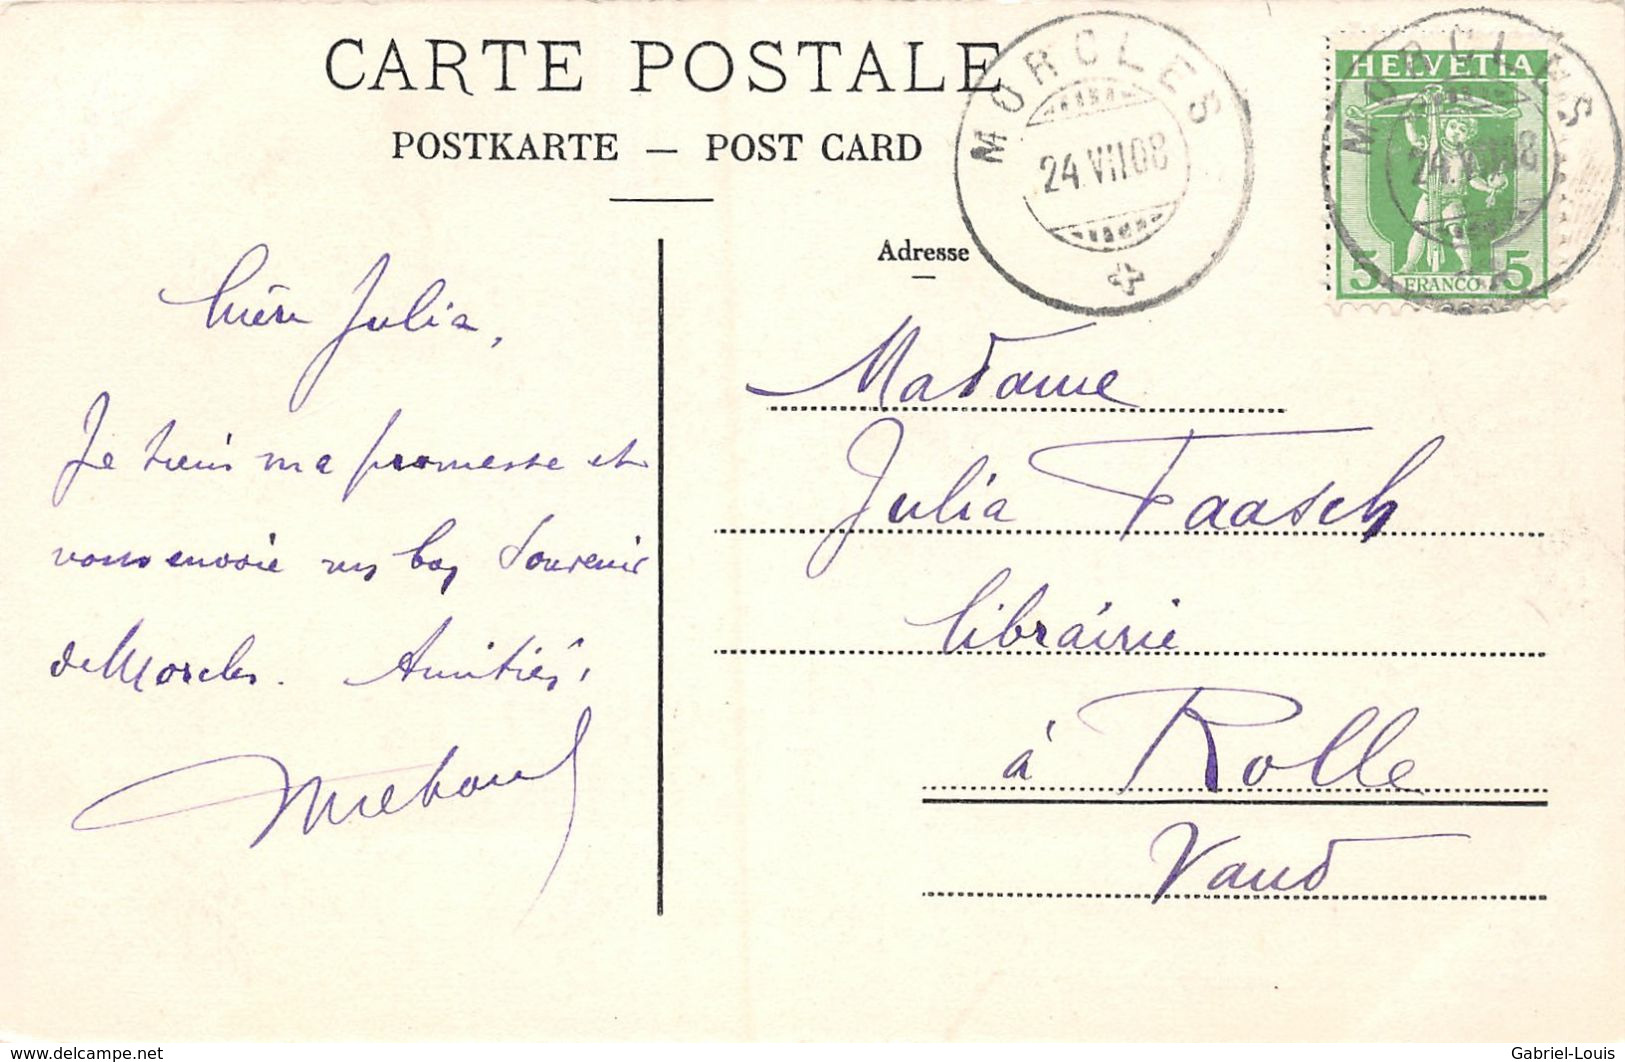 CARTE POSTALE
POSTKARTE — POST CARD
MORCLES
24.VII.08
HELVETIA
5 FRANCO 5
MORCLES
24.VII.08
Adresse
Julia,
Je tiens ma promesse et
vous envoie un bon souvenir
de Morcles. Amitiés.
Madame
Julia Faasch
librairie
à Rolle
Vaud
www.delcampe.net
Gabriel-Louis